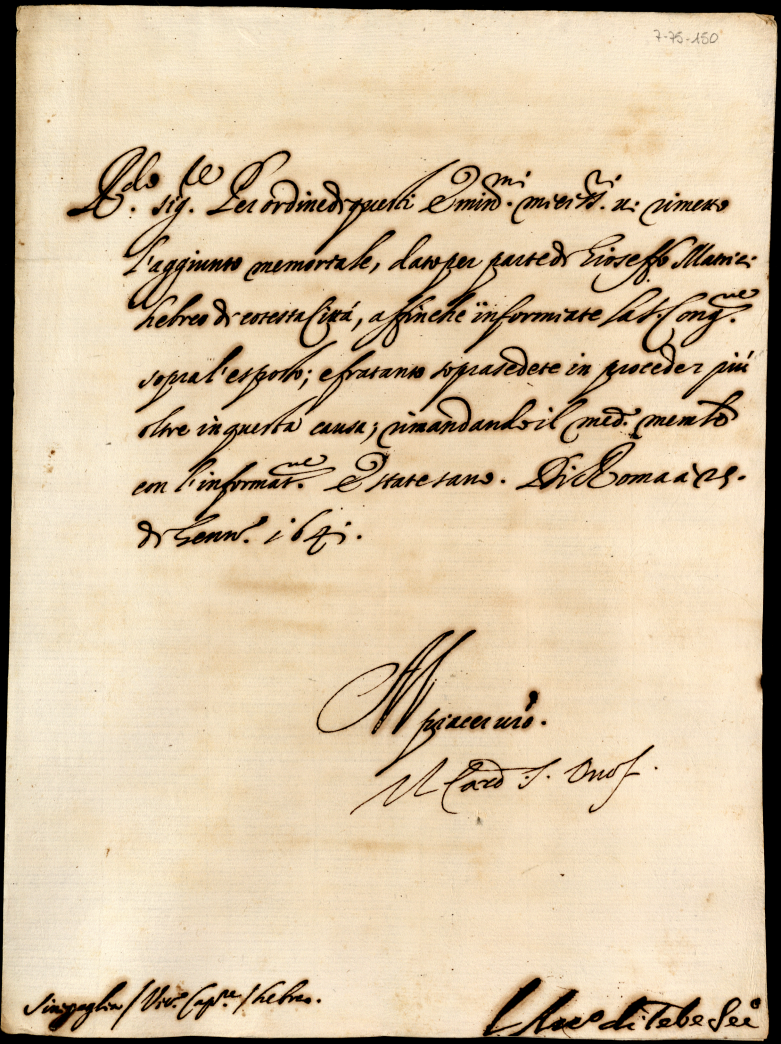 7-75-150
R.do sig.re Per ordine di questi Emin.mi miei SS.ri vi rimetto
l'aggiunto memoriale, dato per parte di Gioseffo
hebreo di cotesta Città, affinche informiate la S. Cong.ne
sopra l'esposto; e fratanto soprasedete in proceder più
oltre in questa causa; rimandando il med.o memle
con l'informat.ne E state sano. Di Roma a 25.
di Genn.o 1641.
Al piacer vro.
Il Card. S. Onof.
Sinigaglia / Vic.o Cap.re / hebreo.